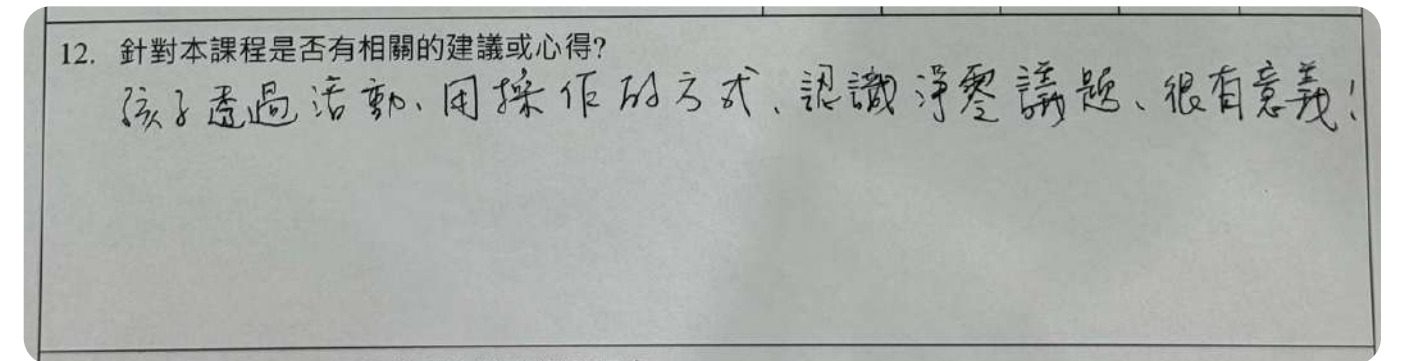 12. 針對本課程是否有相關的建議或心得?
孩子透過活動、用操作的方式、認識淨零議題、很有意義!